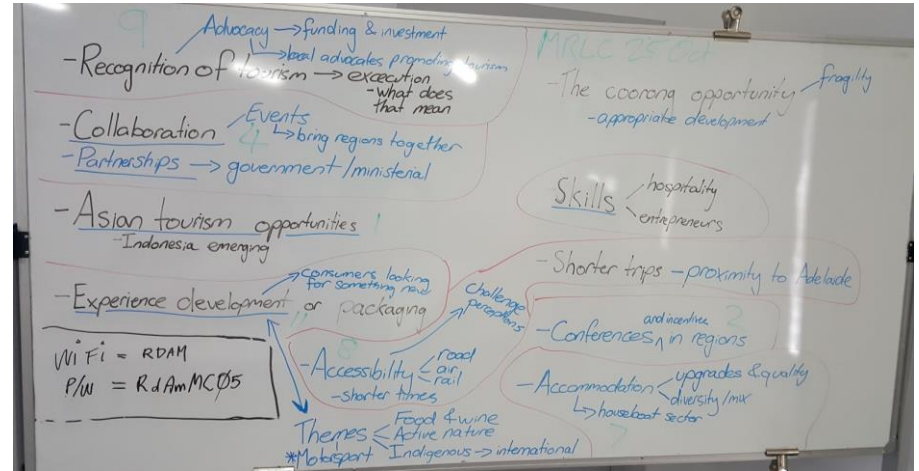 9
Advocacy → funding & investment
↳ local advocates promoting tourism
- Recognition of tourism → excecution
- what does
that mean
- Collaboration
Events
↳ bring regions together
4
- Partnerships → government/ministerial
- Asian tourism opportunities 1
- Indonesia emerging
consumers looking
for something new
- Experience development or packaging
11
WiFi = RDAM
P/W = RdAmMCØ5
8
- Accessibilty
road
air
rail
- shorter times
challenge
perceptions
Themes
Food & wine
Active nature
Indigenous → international
*Motorsport
MRLC 25 Oct
- The coorong opportunity
fragility
- appropriate development
Skills
hospitality
entrepreneurs
- Shorter trips - proximity to Adelaide
and incentive
- Conferences ^ in regions
- Accommodation
upgrades & quality
diversity/mix
↳ houseboat sector
7